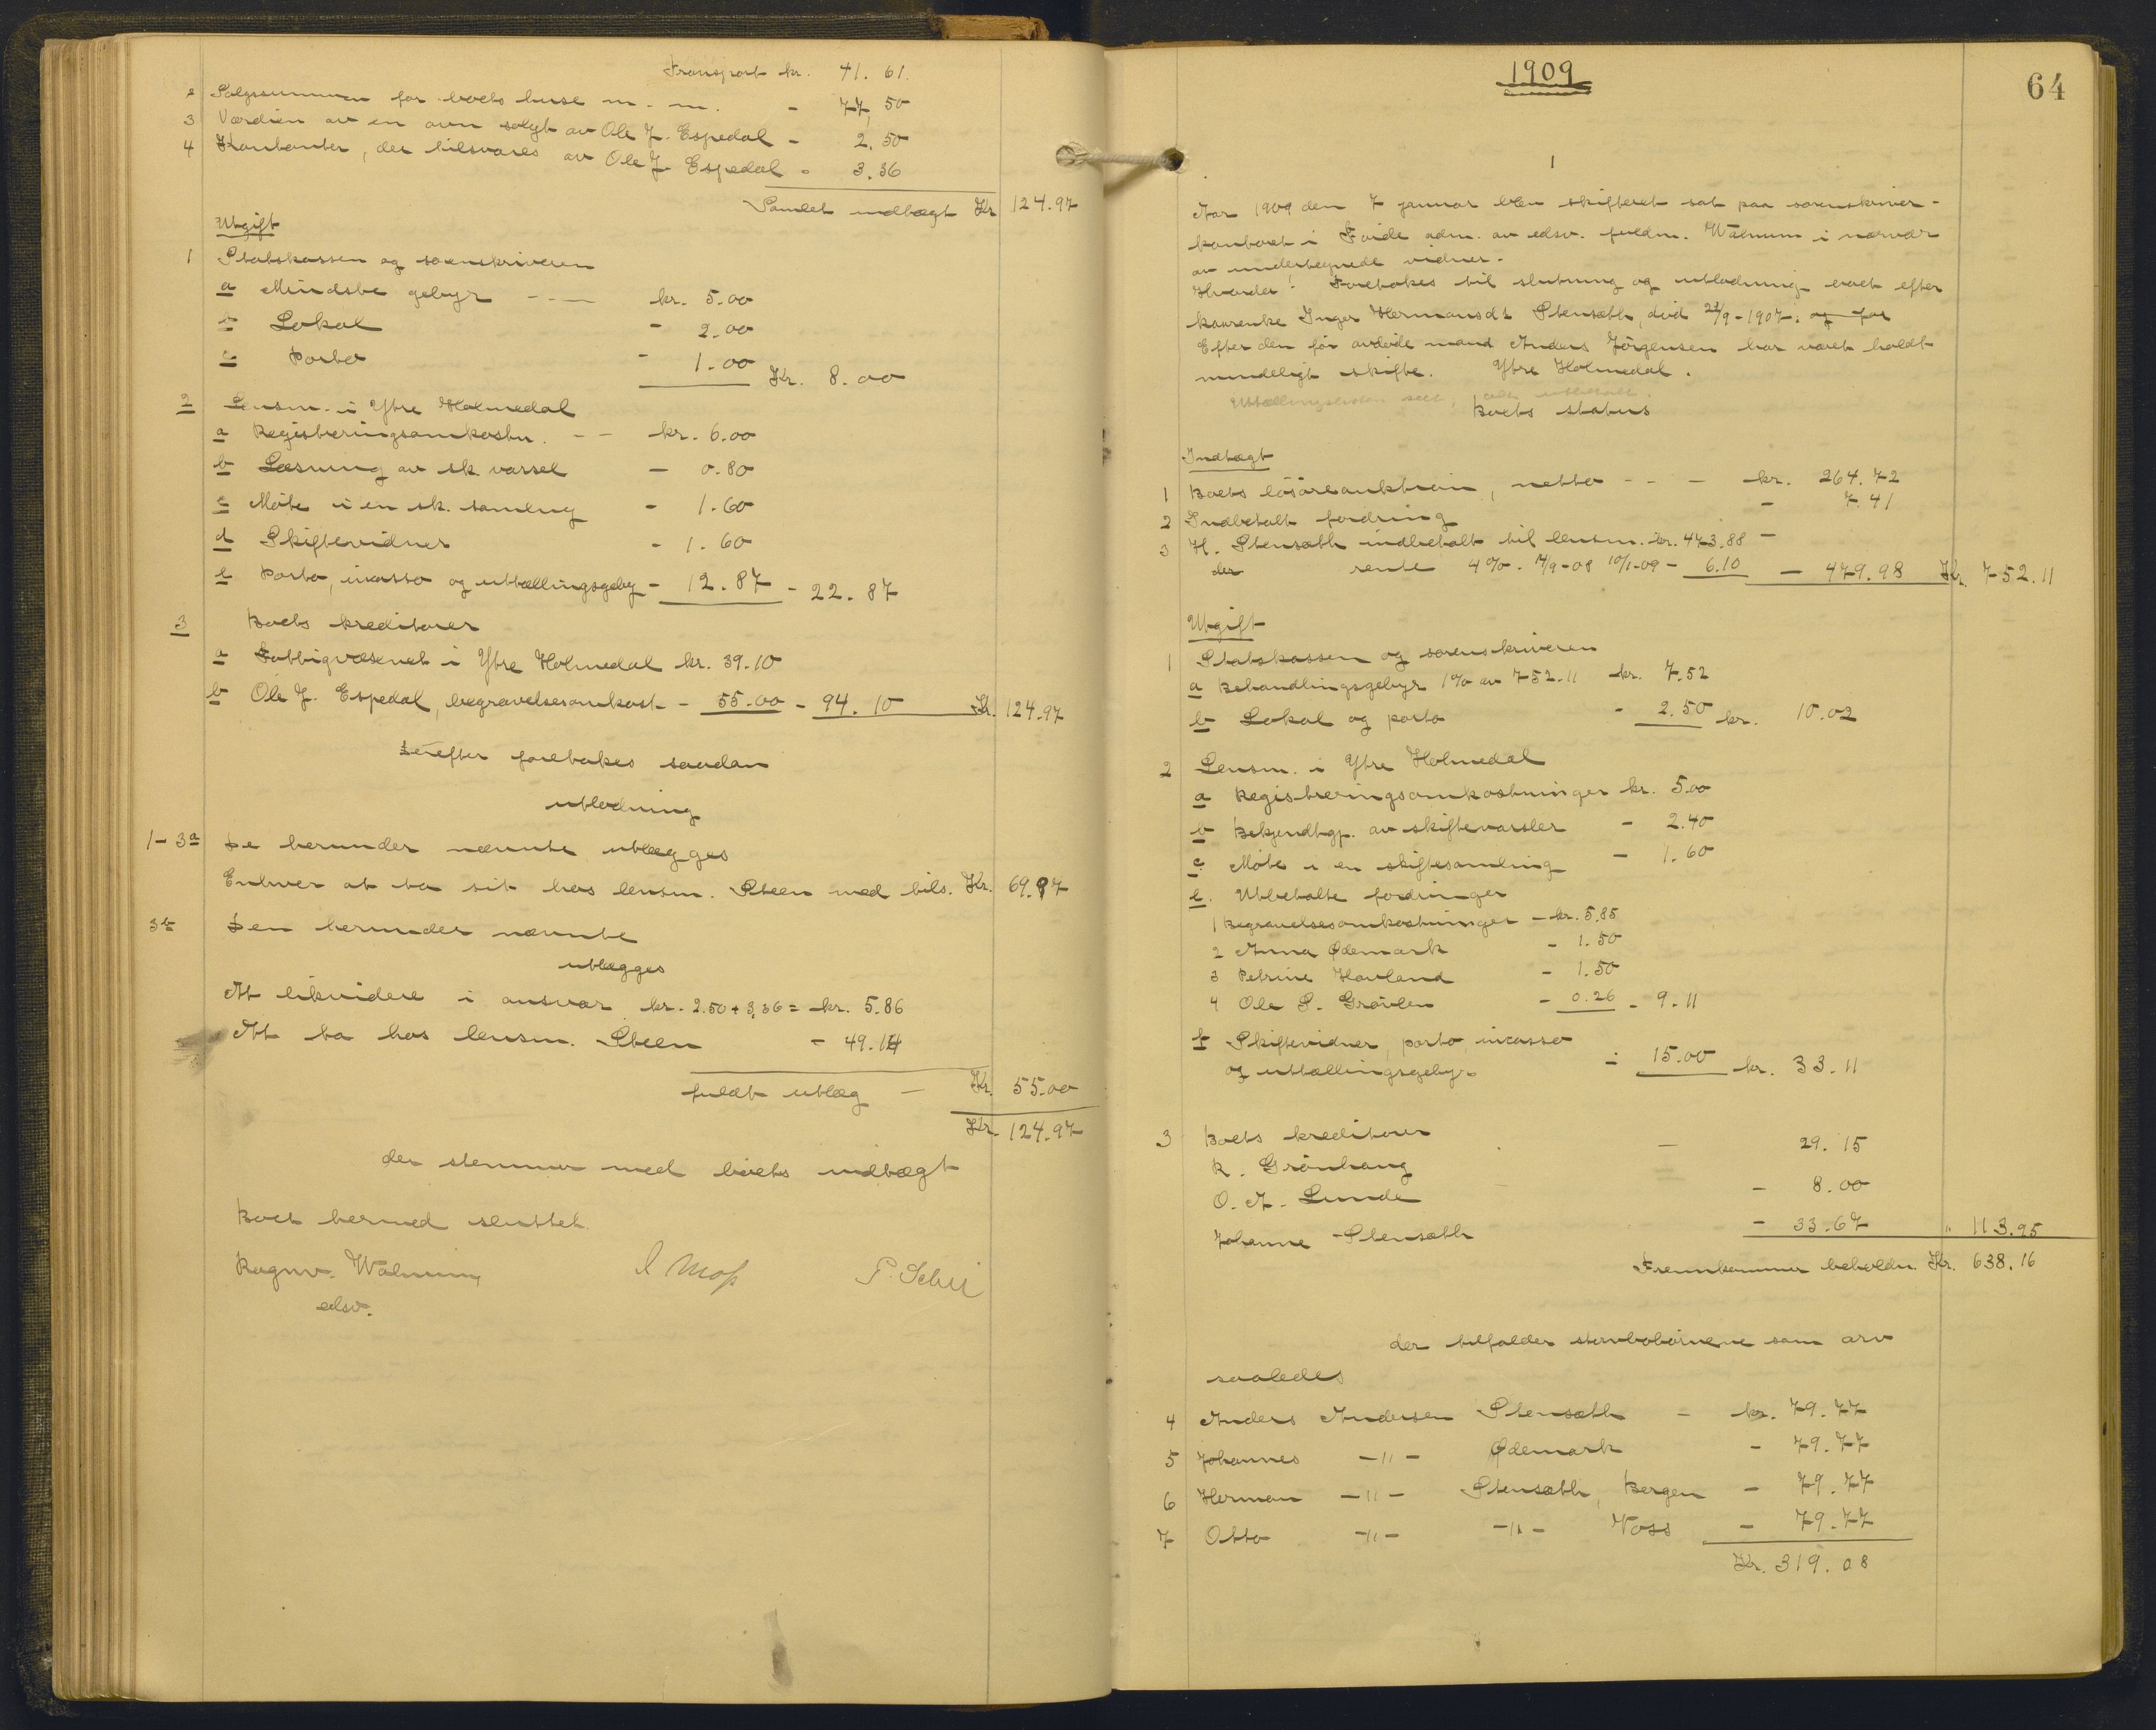 Transport kr. 41.61.
2 Salgssummen for boets huse m. m. - 77,50
3 Værdien av en ovn solgt av Ole J. Espedal - 2.50
4 Kontanter, der tilsvares av Ole J. Espedal - 3.36
Samlet indtægt Kr 124.97
Utgift
1 Statskassen og sorenskriveren
a Mindste gebyr - - - kr. 5.00
b Lokal - 2.00
c Porto - 1.00 Kr. 8.00
2 Lensm. i Ytre Holmedal
a Registreringsomkostn. - - kr. 6.00
b Læsning av sk. varsel - 0.80
c Møte i en sk. samling - 1.60
d Skiftevidner - 1.60
e Porto, inkasso og uttællingsgeby - 12.87 - 22.87
3 Boets kreditorer
a Fattigvæsenet i Ytre Holmedal kr. 39.10
b Ole J. Espedal, begravelsesomkost - 55.00 - 94.10 Kr. 124.97
Derefter foretokes saadan
utlodning
1-3a De herunder nævnte utlægges
Enhver at ta sit hos lensm. Steen med tils. Kr. 69.97
3b Den herunder nævnte
utlægges
At likvidere i ansvar kr. 2.50 + 3,36 = kr. 5.86
At ta hos lensm. Steen - 49.14
fuldt utlæg - Kr. 55.00
Kr. 124.97
der stemmer med boets indtægt
Boet hermed sluttet.
Ragnv. Walnum
edsv.
I Moss
P. Schei
1909
64
1
Aar 1909 den 7 januar blev skifteret sat paa sorenskriver-
kontoret i Førde adm. av edsv. fuldm. Walnum i nærvær
av undertegnede vidner.
Hvorda! Foretokes til slutning og utlodning boet efter
kaarenke Inger Hermansdt Stensæth, død 21/9-1907. og for
Efter den før avdøde mand Anders Jørgensen har været holdt
mindeligt skifte. Ytre Holmedal.
Boets status
Indtægt
1 Boets løsøreauktion, netto - - - kr. 264.72
2 Indbetalt fordring - 7.41
3 H. Stensæth indbetalt til lensm. kr. 473.88 -
der rente 4% 14/9-08 10/1-09 - 6.10 - 479.98 Kr. 752.11
Utgift
1 Statskassen og sorenskriveren
a Behandlingsgebyr 1% av 752.11 kr. 7.52
b Lokal og porto - 2.50 kr. 10.02
2 Lensm. i Ytre Holmedal
a Registreringsomkostninger kr. 5.00
b Bekjendtgj. av skiftevarsler - 2.40
c Møte i en skiftesamling - 1.60
e. Utbetalte fordringer
1 Begravelsesomkostninger - kr. 5.85
2 Anna Ødemark - 1.50
3 Petrine Hovland - 1.50
4 Ole S. Grøvlen - 0.26 - 9.11
f Skiftevidner, porto, inkasso
og uttællingsgebyr - 15.00 kr. 33.11
3 Boets kreditorer
R. Grønhaug - 29.15
O. A. Lunde - 8.00
Johanne Stensæth - 33.67 " 113.95
Fremkommer beholdn. Kr. 638.16
der tilfalder stervbobørnene som arv
saaledes
4 Anders Andersen Stensæth - kr. 79.77
5 Johannes -"- Ødemark - 79.77
6 Herman -"- Stensæth, Bergen - 79.77
7 Otto -"- -"- Voss - 79.77
Kr. 319.08